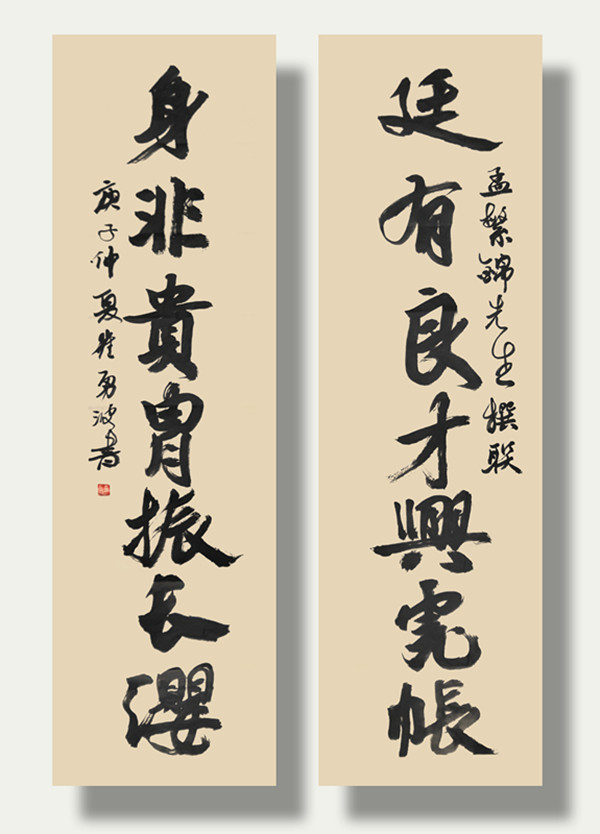 孟繁錦先生撰联
廷有良才興虎帳
身非貴胄振長纓
庚子仲夏崔勇波書